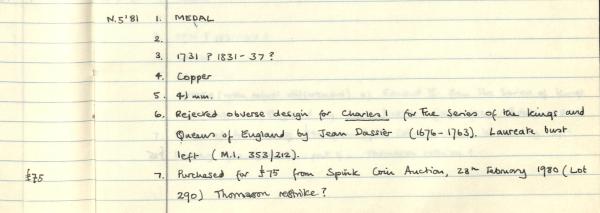 N.5'81 1. MEDAL
2.
3. 1731 ? 1831-37?
4. Copper
5. 41 mm.
6. Rejected obverse design for Charles I for the Series of the Kings and
Queens of England by Jean Dassier (1676-1763). Laureate bust
left (M.I. 353/212).
£75 7. Purchased for £75 from Spink Coin Auction, 28th February 1980 (Lot
290) Thomason restrike?